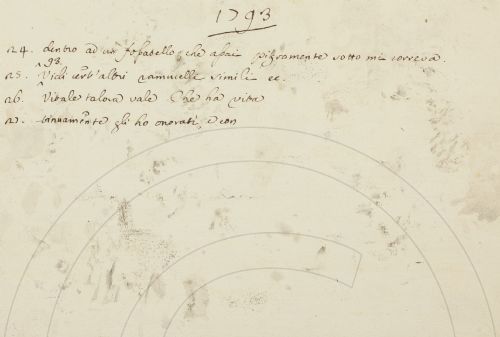 1793
24. dentro ad un fossadello, che assai pigramente sotto mi correva.
93.
25. Vidi cert'altri ramicelli simili ec.
26. Vitale talora vale Che ha vita
2. tinuamente gli ho onorati, e con